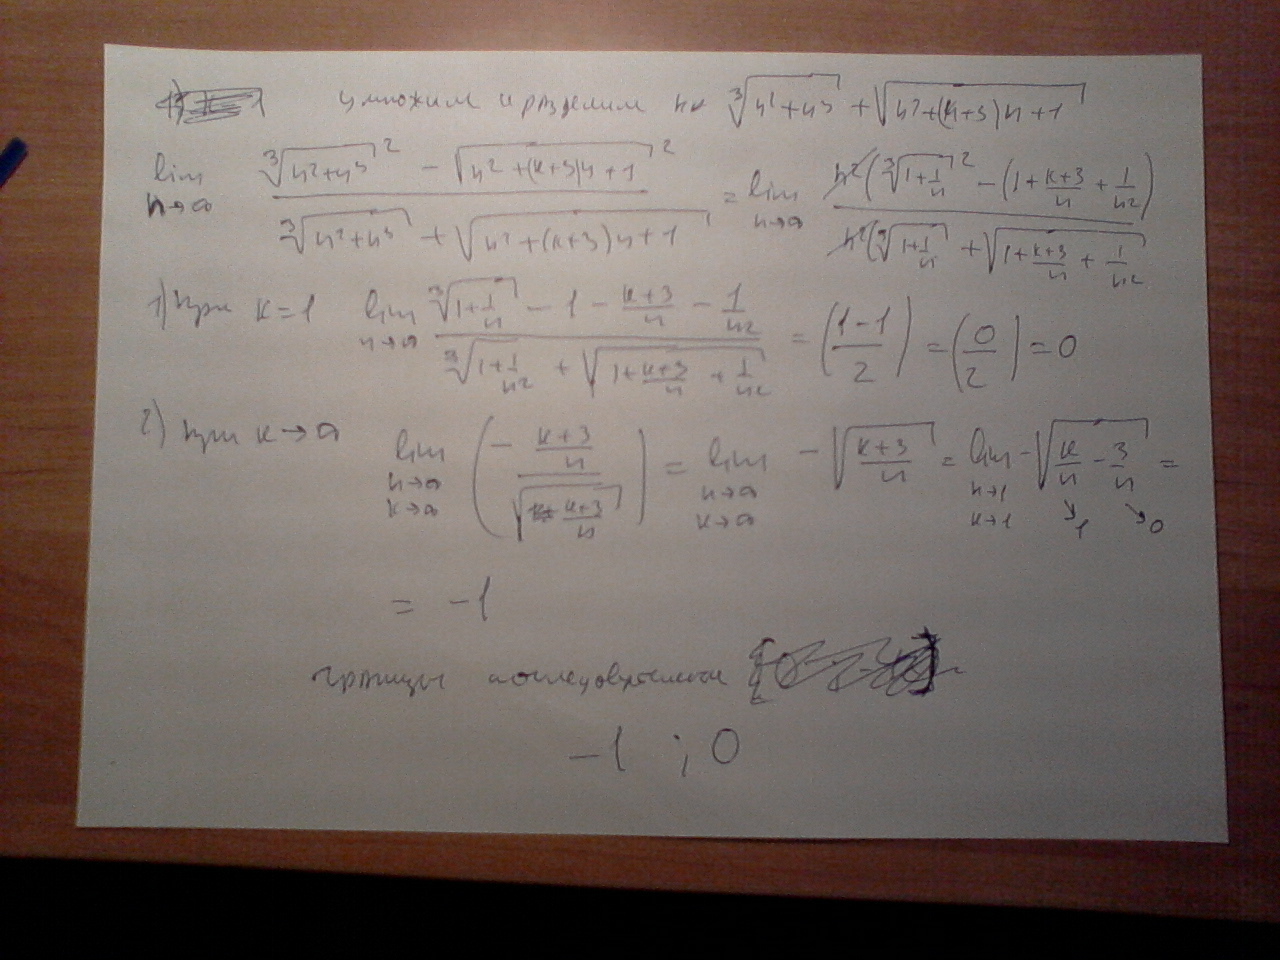 умножим и разделим на ∛(n²+n³) + √(n²+(k+3)n+1)
lim n→∞ (∛(n²+n³)² − √(n²+(k+3)n+1)²) / (∛(n²+n³) + √(n²+(k+3)n+1)) = lim n→∞ n²(∛(1+1/n)² − (1+(k+3)/n+1/n²)) / n²(∛(1+1/n) + √(1+(k+3)/n+1/n²))
1) при k=1 lim n→∞ (∛(1+1/n) − 1 − (k+3)/n − 1/n²) / (∛(1+1/n²) + √(1+(k+3)/n+1/n²)) = ((1−1)/2) = (0/2) = 0
2) при k→∞ lim n→∞ k→∞ (−((k+3)/n) / √((k+3)/n)) = lim n→∞ k→∞ −√((k+3)/n) = lim n→1 k→1 −√(k/n − 3/n) =
↘1 ↘0
= −1
границы последовательности
−1 ; 0